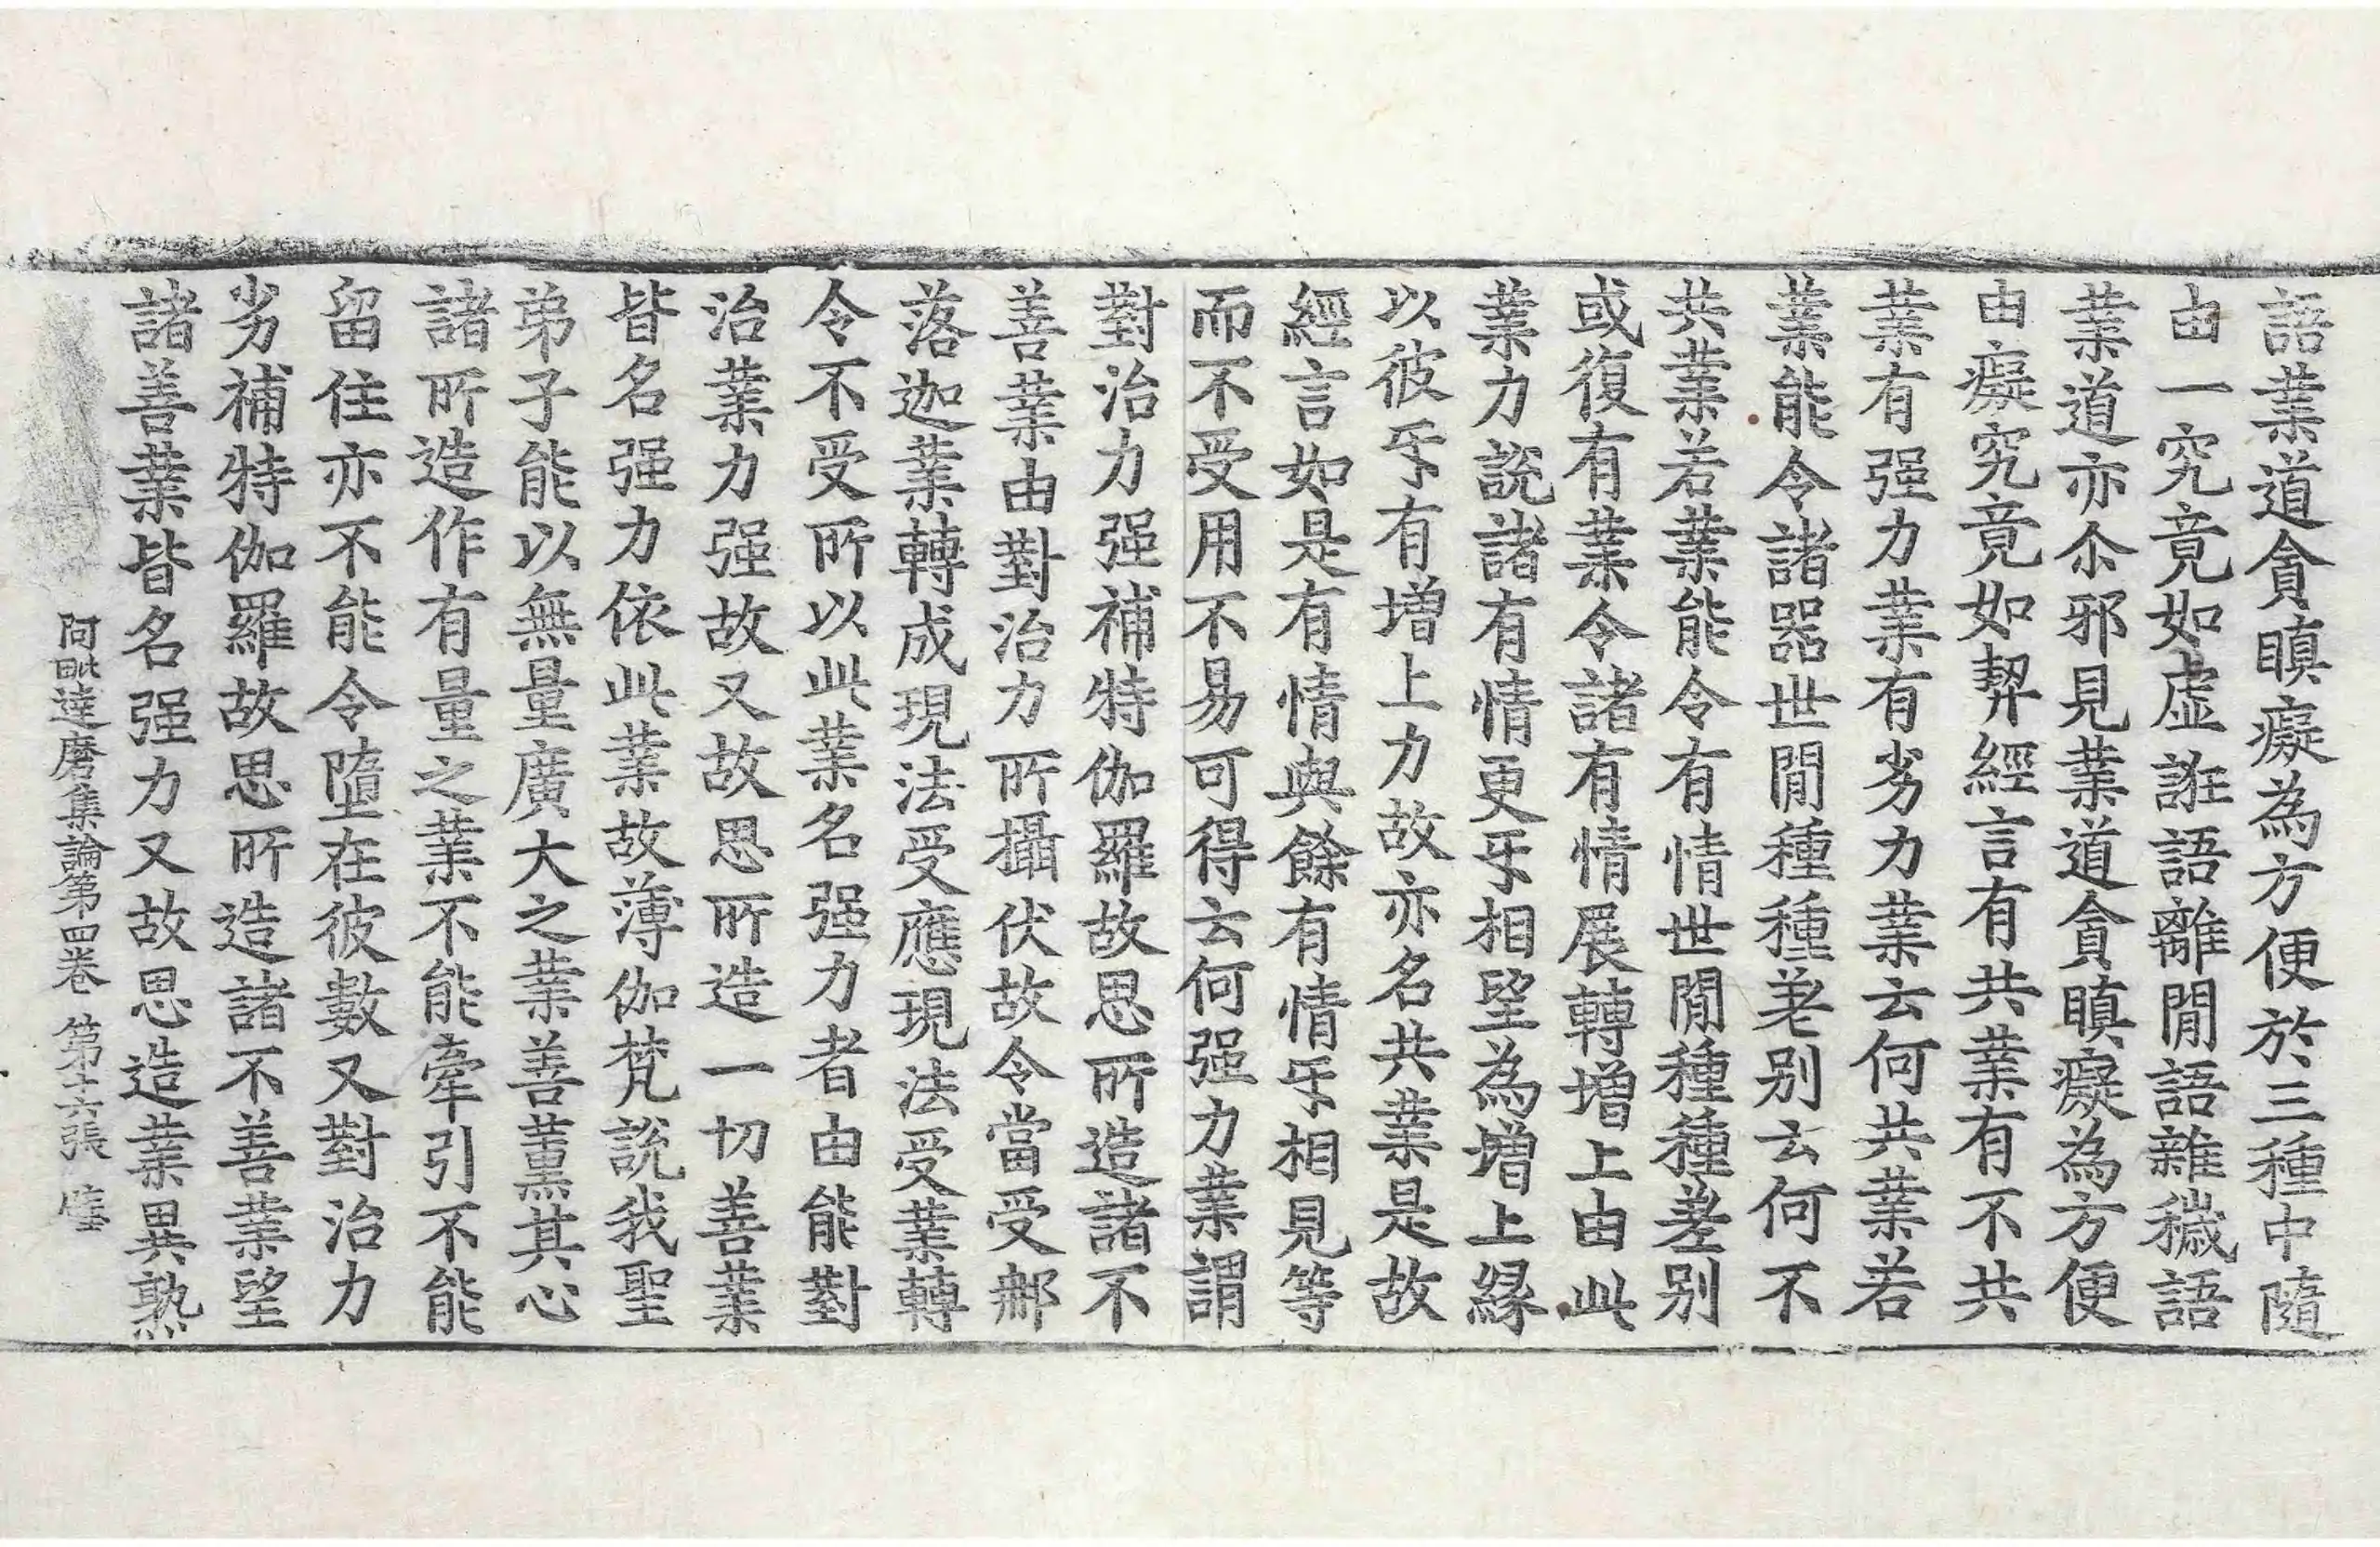 語業道貪瞋癡為方便於三種中隨
由一究竟如虛誑語離閒語雜穢語
業道亦尒邪見業道貪瞋癡為方便
由癡究竟如契經言有共業有不共
業有强力業有劣力業云何共業若
業能令諸器世閒種種差别云何不
共業若業能令有情世閒種種差别
或復有業令諸有情展轉增上由此
業力說諸有情更㸦相望為增上緣
以彼㸦有增上力故亦名共業是故
經言如是有情與餘有情㸦相見等
而不受用不易可得云何强力業謂
對治力强補特伽羅故思所造諸不
善業由對治力所攝伏故令當受那
落迦業轉成現法受應現法受業轉
令不受所以此業名强力者由能對
治業力强故又故思所造一切善業
皆名强力依此業故薄伽梵說我聖
弟子能以無量廣大之業善薰其心
諸所造作有量之業不能牽引不能
留住亦不能令墮在彼數又對治力
劣補特伽羅故思所造諸不善業望
諸善業皆名强力又故思造業異熟
阿毗達磨集論第四卷 第十六張 璧